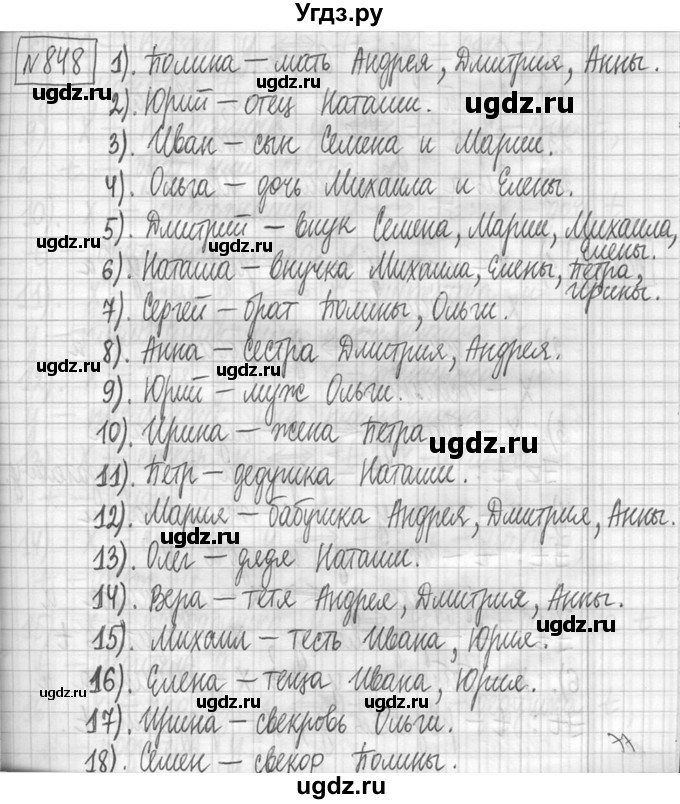 Угдз.ру
№848 1). Полина – мать Андрея, Дмитрия, Анны.
ugdz.ru ugdz.ru
2). Юрий – отец Наташи. ugdz.ru
3). Иван – сын Семена и Марии.
4). Ольга – дочь Михаила и Елены.
5). Дмитрий – внук Семена, Марии, Михаила,
ugdz.ru ugdz.ru Елены.
6). Наташа – внучка Михаила, Елены, Петра,
Ирины.
7). Сергей – брат Полины, Ольги.
8). Анна – сестра Дмитрия, Андрея.
ugdz.ru ugdz.ru
9). Юрий – муж Ольги.
10). Ирина – жена Петра ugdz.ru
11). Петр – дедушка Наташи.
12). Мария – бабушка Андрея, Дмитрия, Анны.
ugdz.ru
13). Олег – дядя Наташи.
14). Вера – тетя Андрея, Дмитрия, Анны.
ugdz.ru
15). Михаил – тесть Ивана, Юрия.
16). Елена – теща Ивана, Юрия.
ugdz.ru
17). Ирина – свекровь Ольги.
ugdz.ru
18). Семен – свекор Полины.